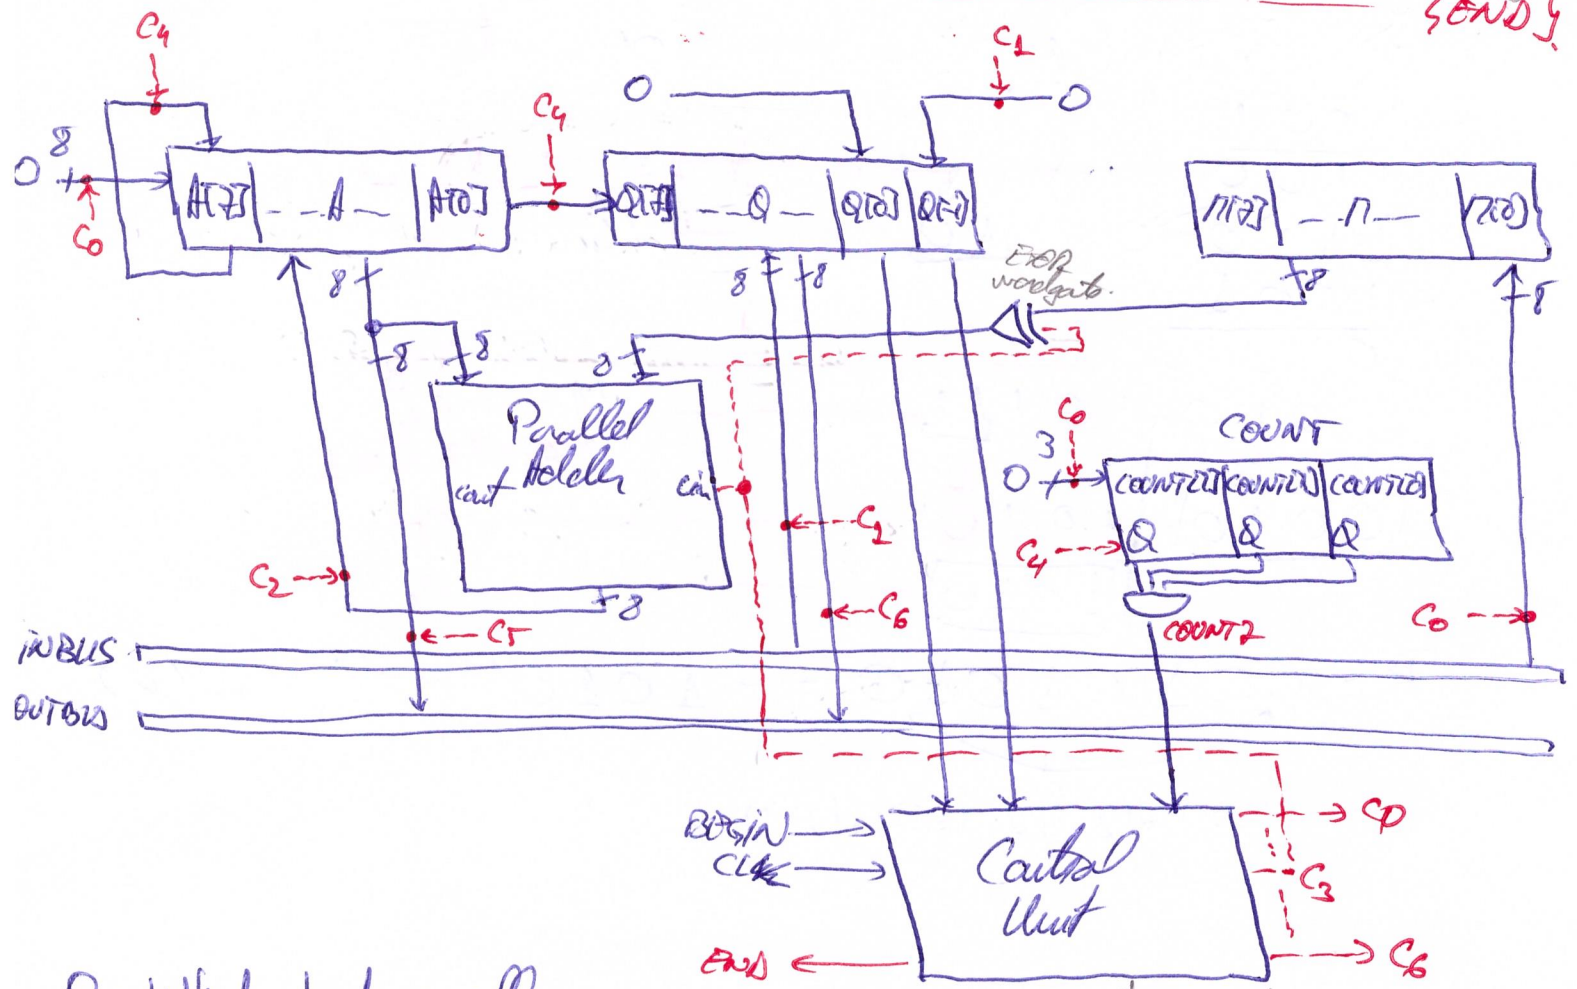 SEND}
C4
C1
0
0
C4
8
0
C0
A[7] _ _A_ A[0]
Q[7] _ _Q_ Q[0] Q[-1]
M[7] _ M _ M[0]
EXOR
wordgate.
8
8
8
8
8
8
8
8
8
Parallel
Adder
cout
cin
C0
3
0
COUNT
COUNT[2] COUNT[1] COUNT[0]
Q Q Q
C4
C1
C2
C6
C0
COUNT7
C5
INBUS
OUTBUS
8
BEGIN
CLK
Control
Unit
C0
C3
END
C6